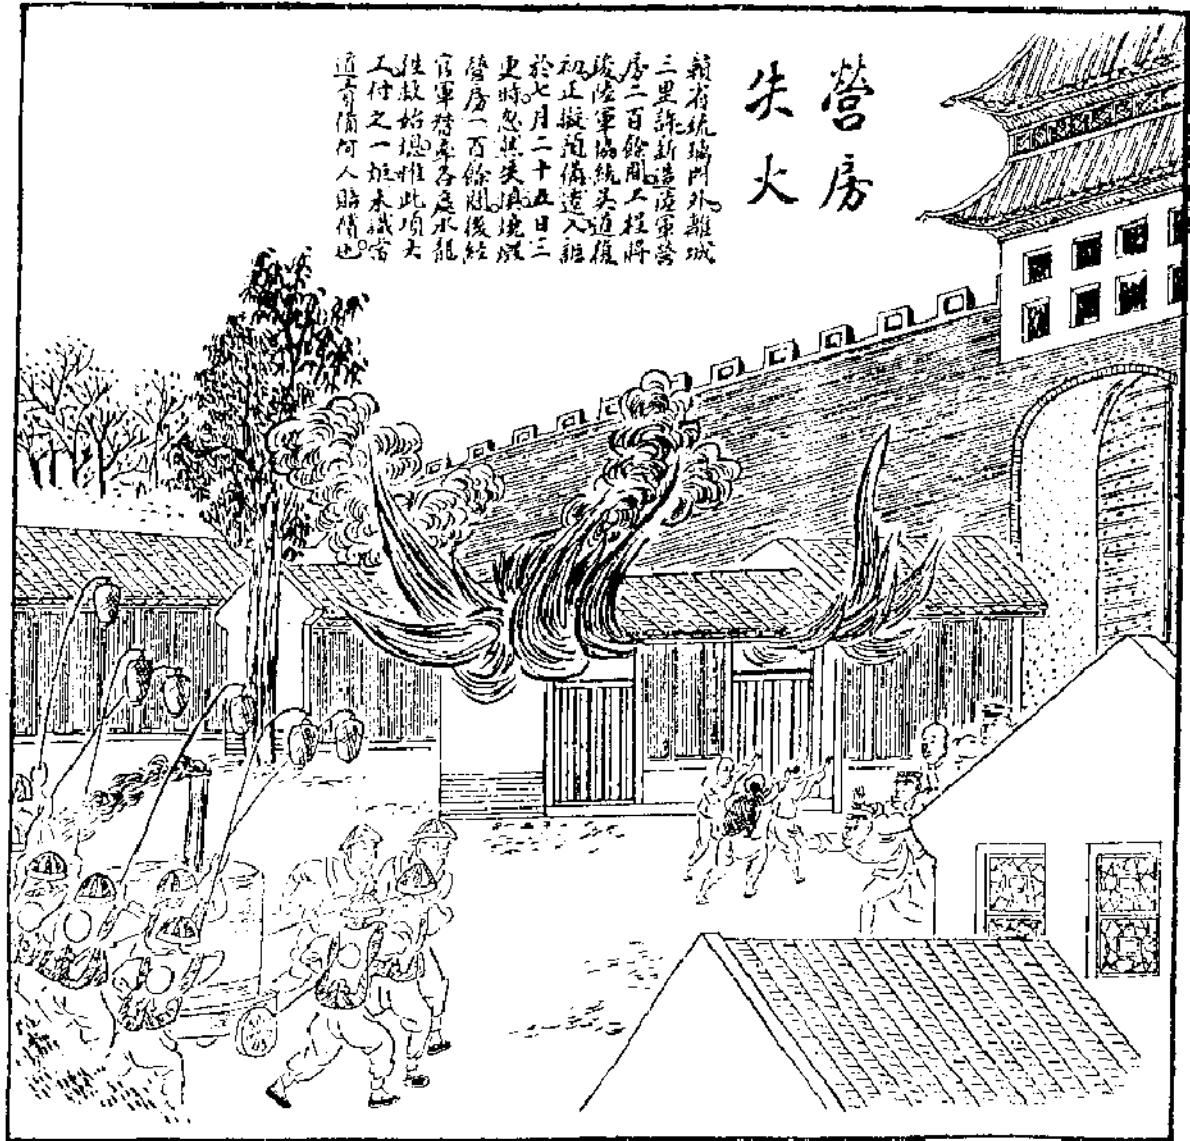 營房
失火
贛省琉璃門外離城
三里許新造陸軍營
房二百餘間工程將
竣陸軍協統吳道復
初正擬預備遷入詎
於七月二十五日三
更時忽然失慎燒燬
營房一百餘間後經
官軍督率各處水龍
往救始熄惟此項大
工付之一炬未識當
道責備何人賠償也